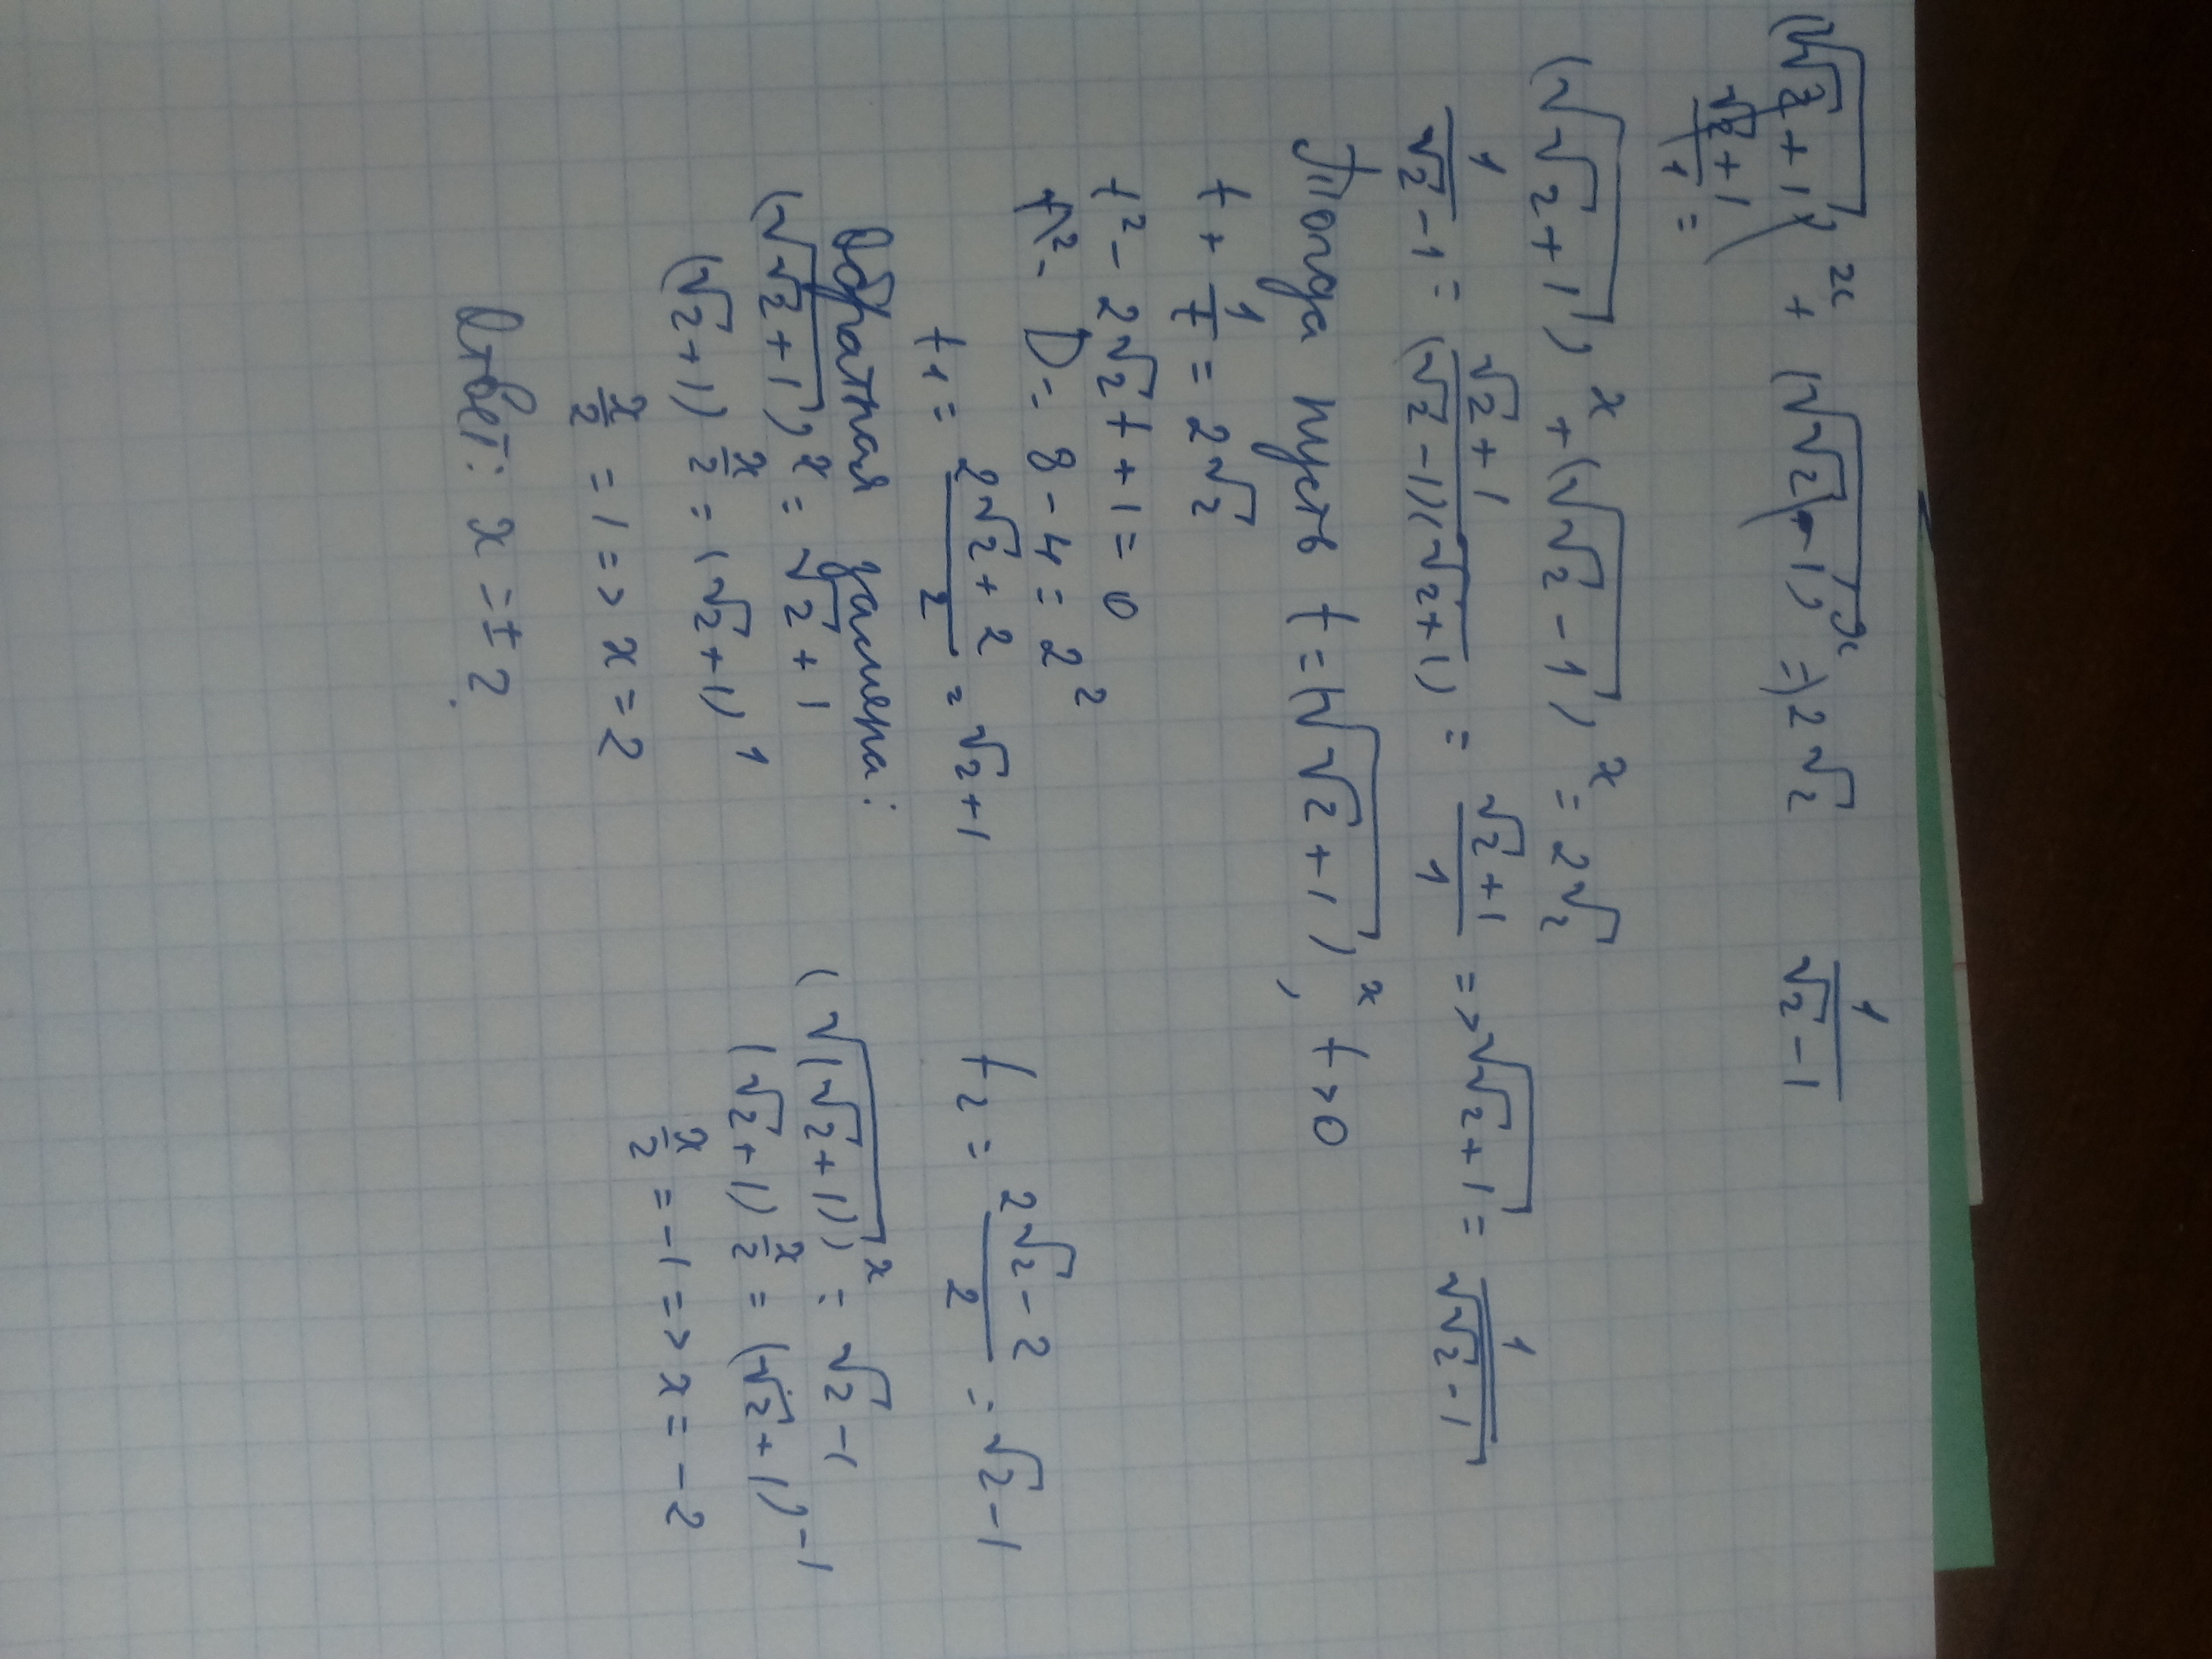 (√(√2+1))^x + (√(√2-1))^x = 2√2     1/(√2-1)
1/(√2+1) =
(√(√2+1))^x + (√(√2-1))^x = 2√2
1/(√2-1) = (√2+1)/((√2-1)(√2+1)) = (√2+1)/1 => √(√2+1) = 1/√(√2-1)
Тогда пусть t = (√(√2+1))^x, t>0
t + 1/t = 2√2
t² - 2√2t + 1 = 0
D = 8 - 4 = 2²
t1 = (2√2+2)/2 = √2+1     t2 = (2√2-2)/2 = √2-1
Обратная замена:
(√(√2+1))^x = √2+1     (√(√2+1))^x = √2-1
(√2+1)^(x/2) = (√2+1)^1     (√2+1)^(x/2) = (√2+1)^-1
x/2 = 1 => x = 2     x/2 = -1 => x = -2
Ответ: x = ±2.